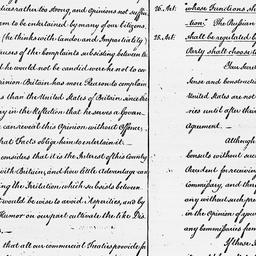 tices rather too strong, and Opinions not suffi-
em to be entertained by many of our Citizens.
(he thinks with Candor and Impartiality)
auses of the Complaints subsisting between th
d he would not be candid were he not to co
pinion Britain has more Reason to complain
s than the United States of Britain since the
ry in the Reflection that he serves a Govern
can reveal this Opinion without Offence;
hat Facts oblige him to entertain it. —
considers that it is the Interest of this Country
with Britain, and how little Advantage can
ing the Irritation which subsists between
t would be wise to avoid Asperities, and by
Humor on our part cultivate the like Dis-
s. —
that all our commercial Treaties provide for
16. Art:
whose Functions sh
tion: The Russian
15. Art:
shall be regulated b
Party shall choose to
Sense and constructi
United States are not
ries until after thi
Agreement. —
Although
Consuls without sec
Precedent for receiving
Commissary, and they
any without such pre
in the Opinion of your
any Commissaries from
If these